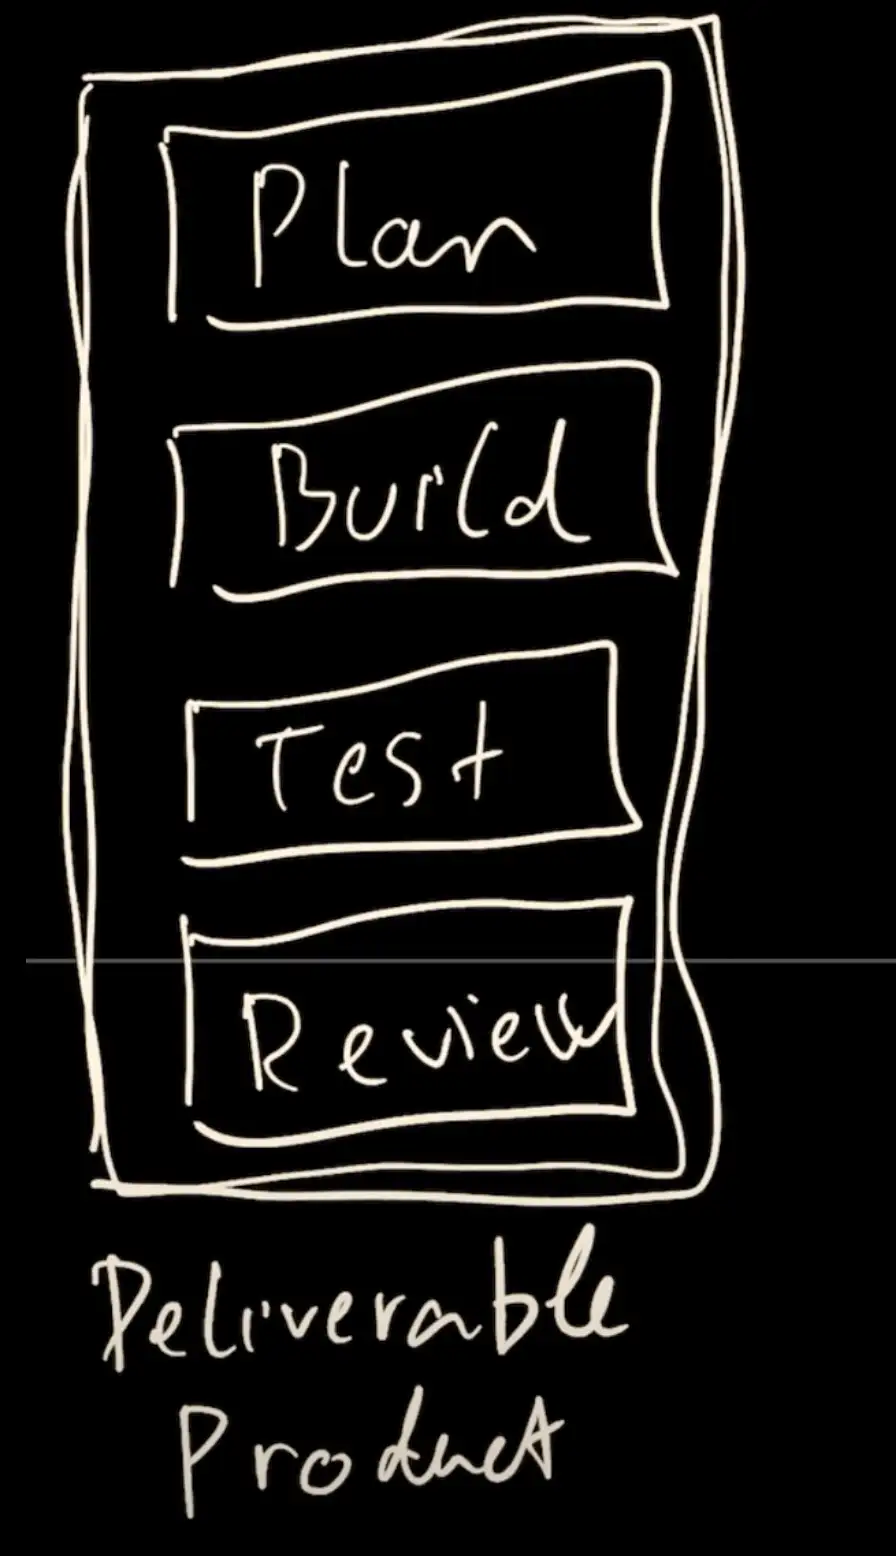 Plan
Build
Test
Review
Deliverable
Product